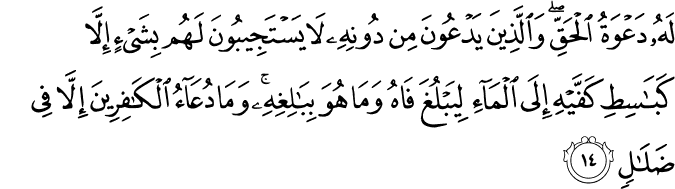 لَهُۥ دَعۡوَةُ ٱلۡحَقِّۖ وَٱلَّذِينَ يَدۡعُونَ مِن دُونِهِۦ لَا يَسۡتَجِيبُونَ لَهُم بِشَيۡءٍ إِلَّا
كَبَٰسِطِ كَفَّيۡهِ إِلَى ٱلۡمَآءِ لِيَبۡلُغَ فَاهُ وَمَا هُوَ بِبَٰلِغِهِۦۚ وَمَا دُعَآءُ ٱلۡكَٰفِرِينَ إِلَّا فِي
ضَلَٰلٖ ١٤